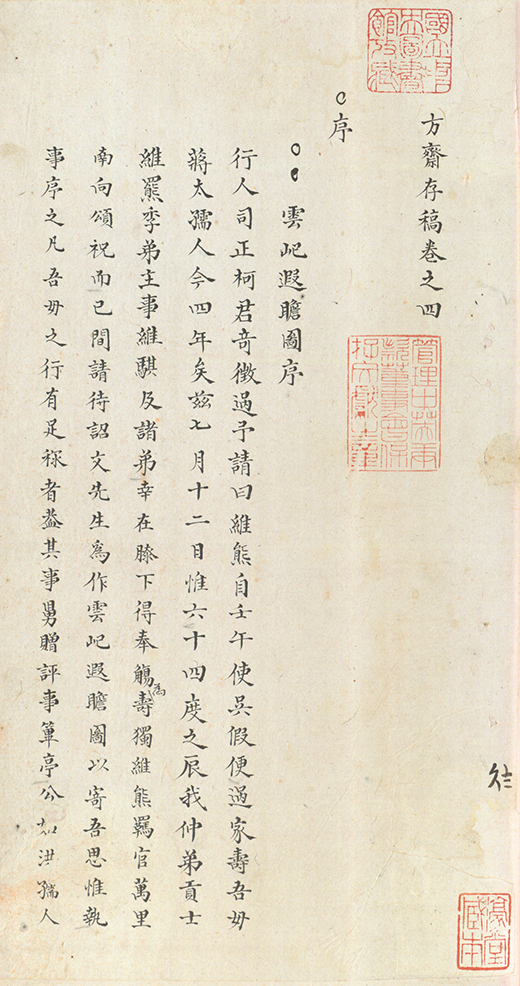 國立北平圖書館收藏
方齋存稿卷之四
管理中英庚款董事會保存文獻之章
序
雲屺遐瞻圖序
行人司正柯君奇徵過予請曰維熊自壬午使吳假便過家壽吾毋
蔣太孺人今四年矣茲七月十二日惟六十四度之辰我仲弟貢士
維羆季弟主事維騏及諸弟幸在膝下得奉觴為壽獨維熊羈官萬里
南向頌祝而已間請待詔文先生爲作雲屺遐瞻圖以寄吾思惟執
事序之凡吾毋之行有足稱者葢其事舅贈評事亭公如洪孺人